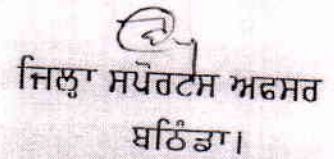 ਜਿਲ੍ਹਾ ਸਪੋਰਟਸ ਅਫਸਰ
ਬਠਿੰਡਾ।